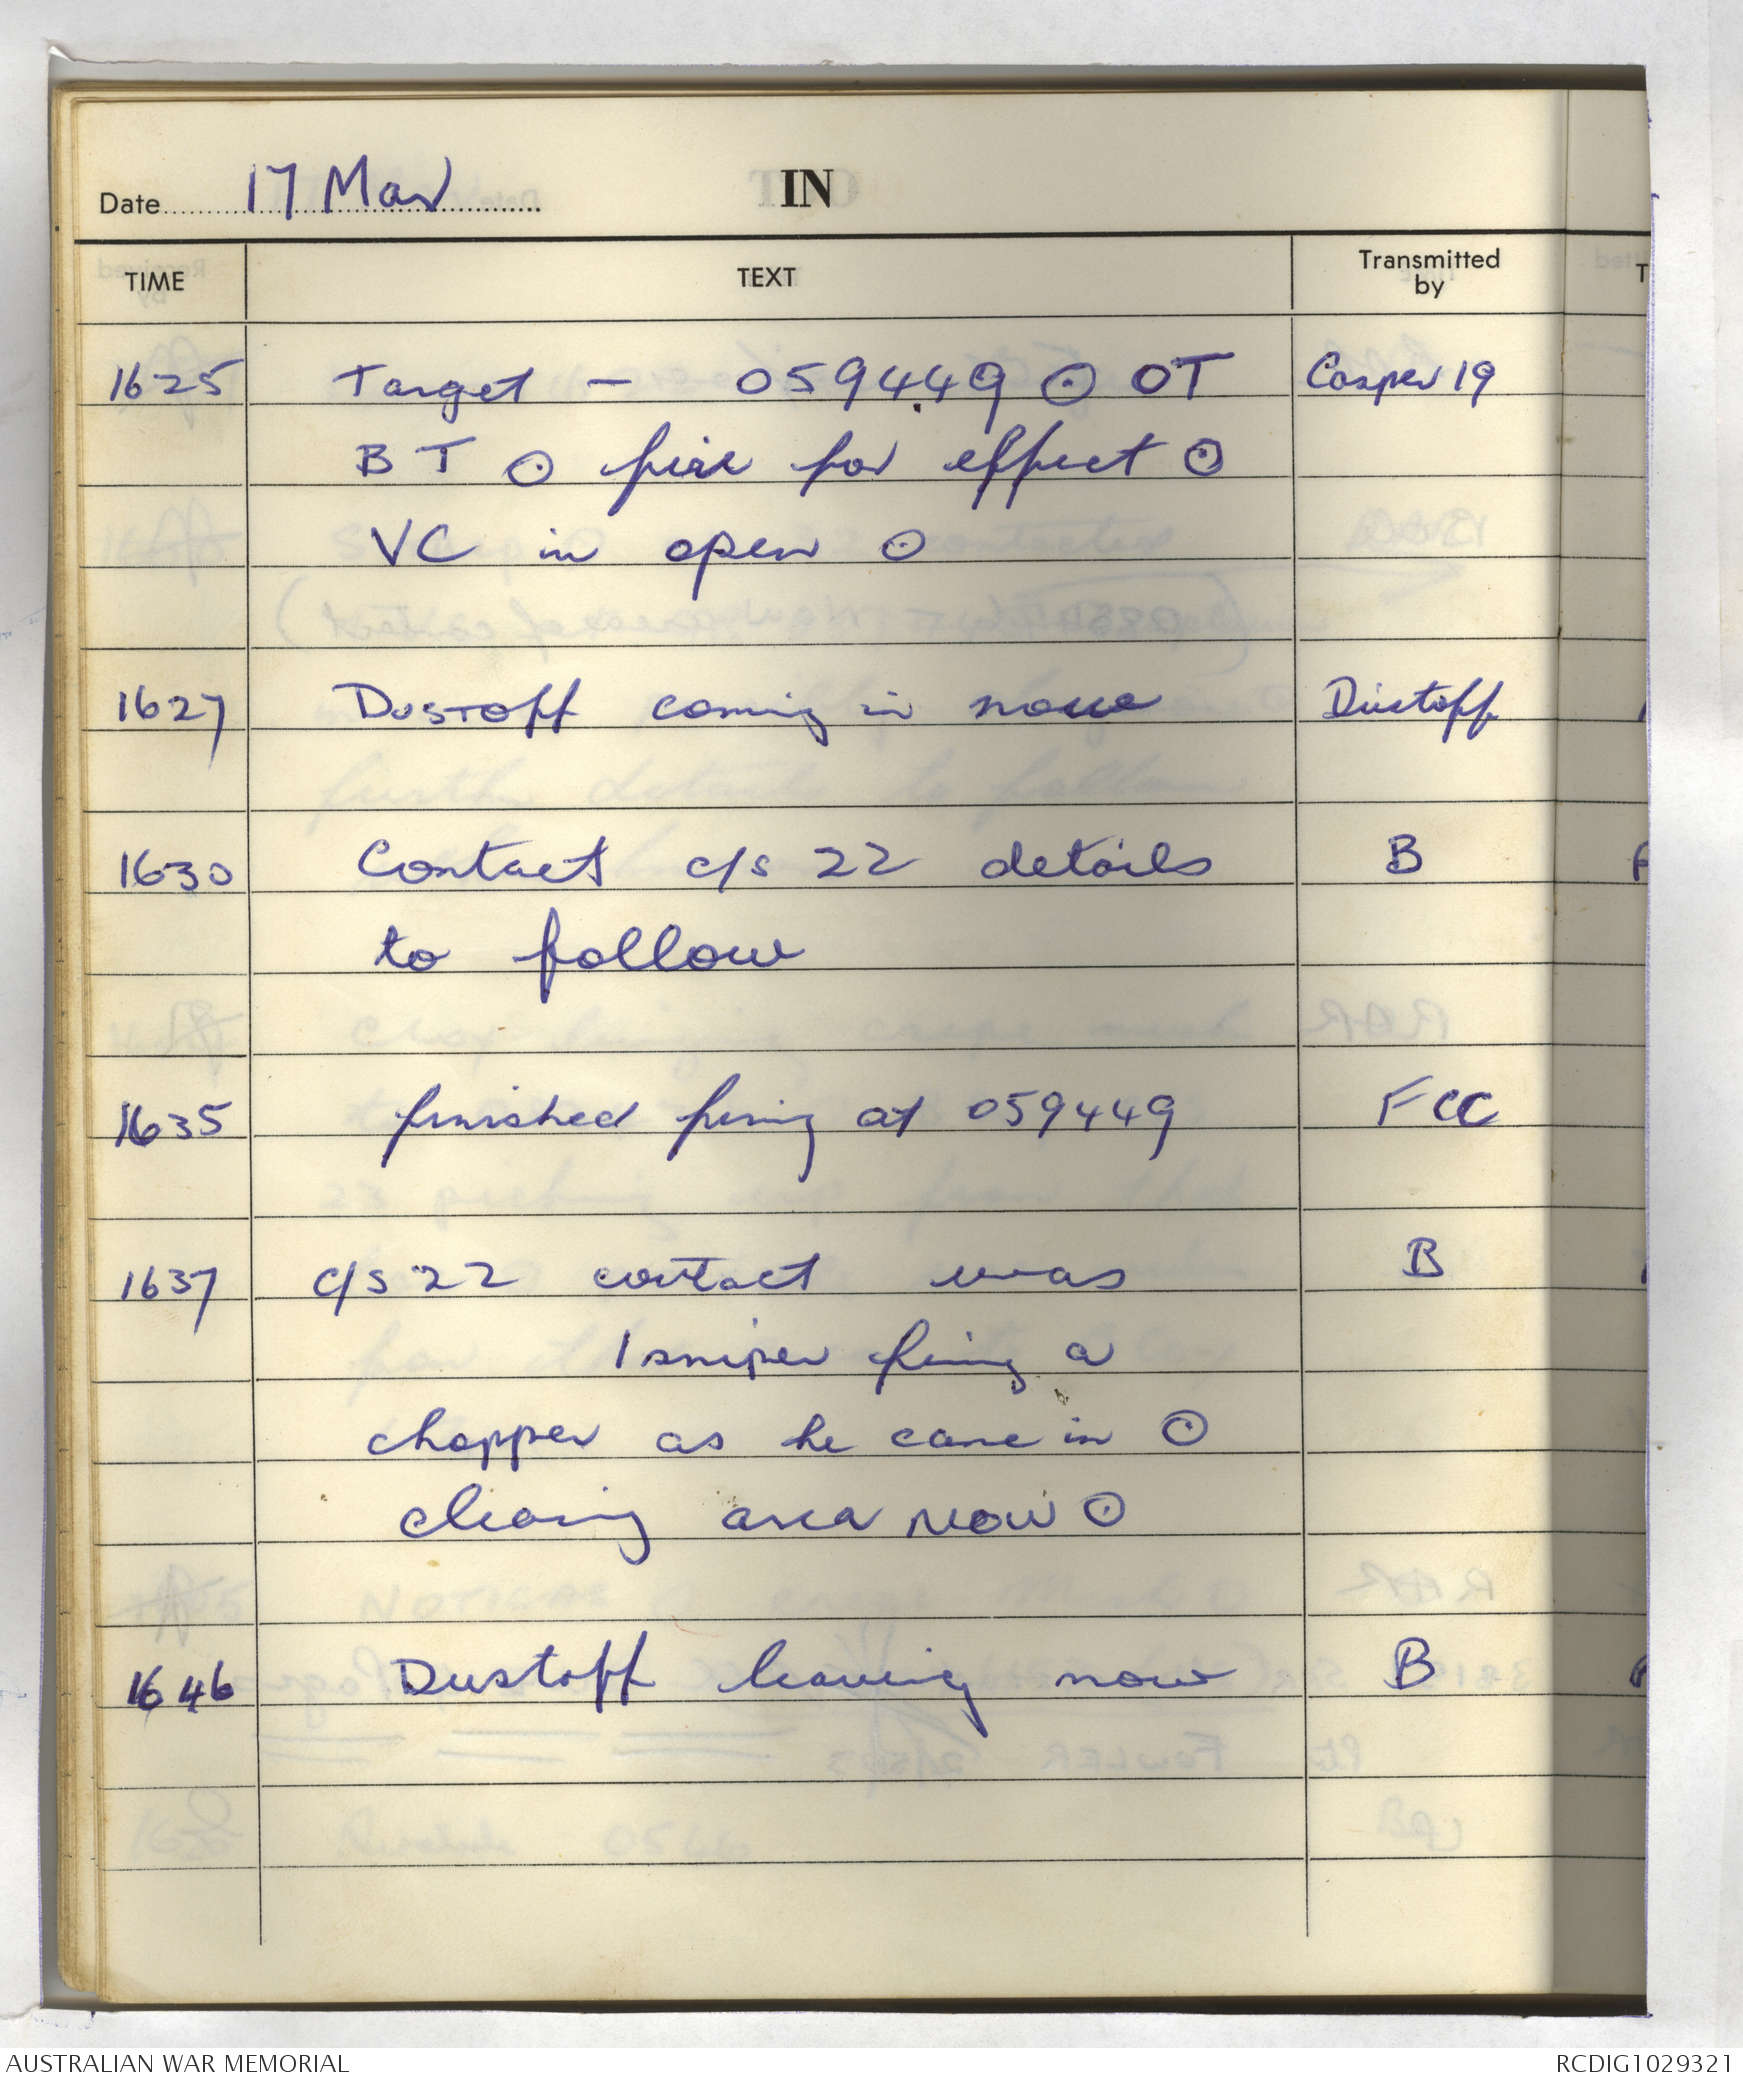 Date 17 Mar IN
TIME TEXT Transmitted by
1625 Target - 059449 ⊙ OT Casper 19
BT ⊙ fire for effect ⊙
VC in open ⊙
1627 DUSTOff coming in now Dustoff
1630 Contact c/s 22 details B
to follow
1635 finished firing at 059449 FCC
1637 c/s 22 contact was B
1 sniper firing a
chopper as he came in ⊙
clearing area now ⊙
1646 Dustoff leaving now B
AUSTRALIAN WAR MEMORIAL RCDIG1029321